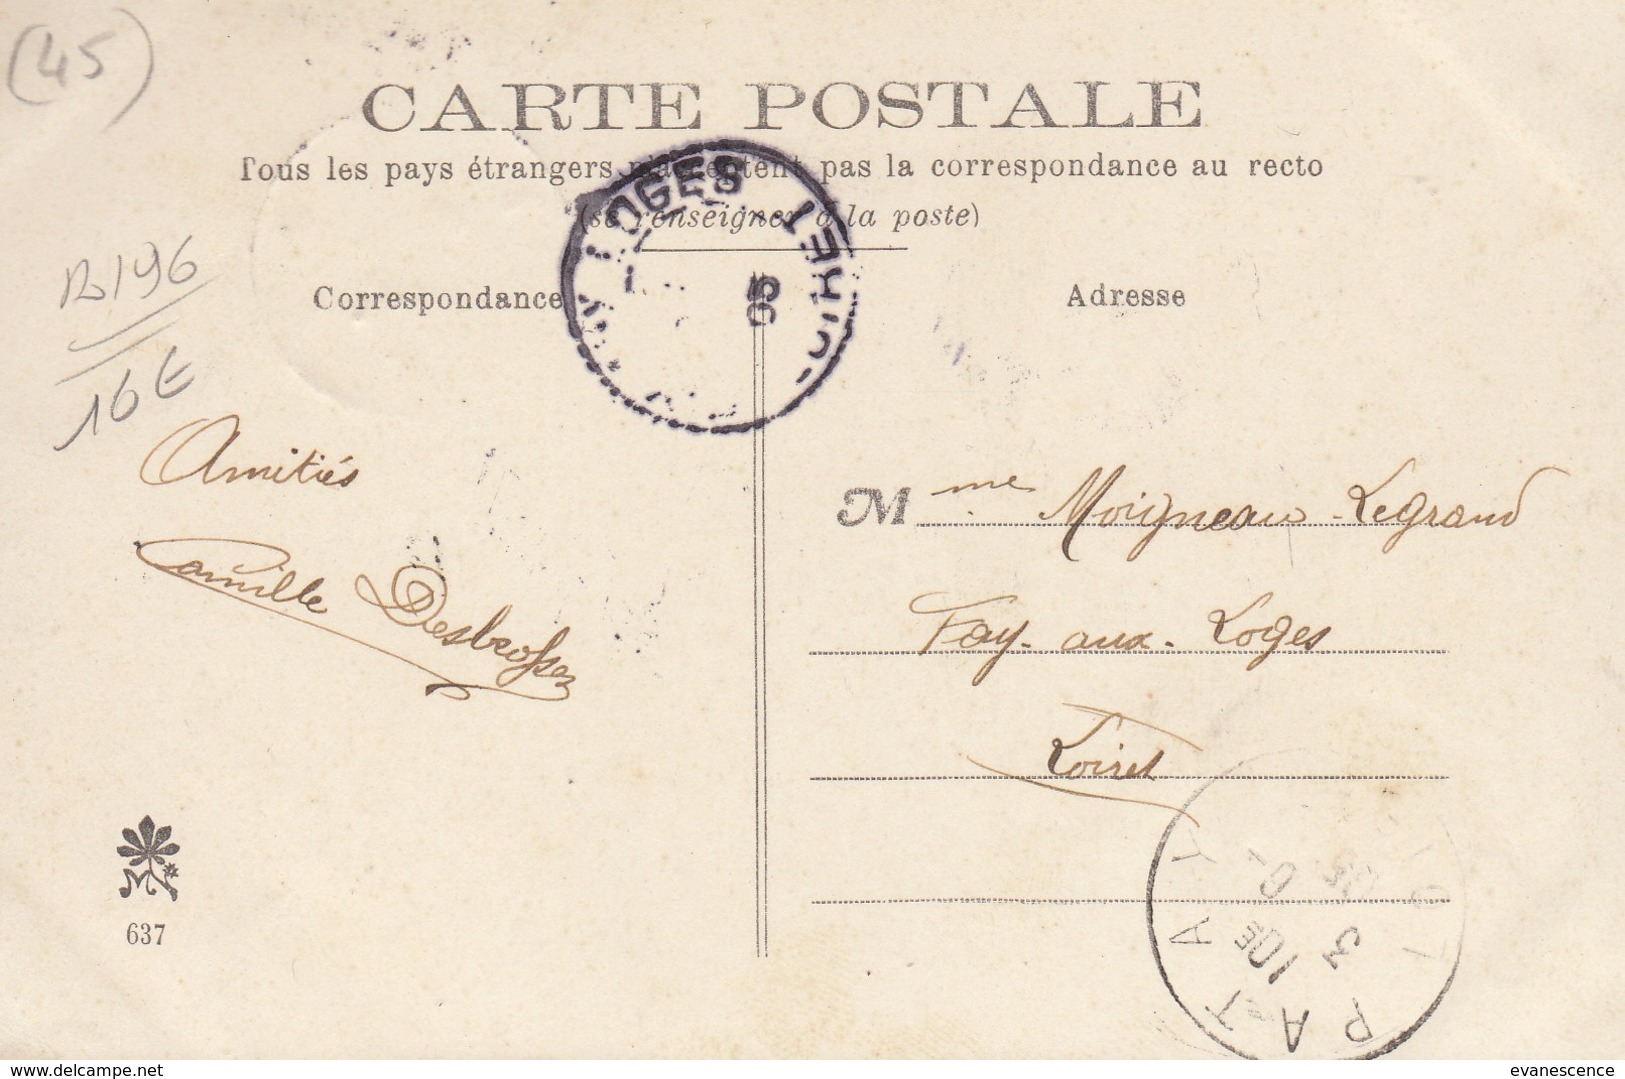 (45)
CARTE POSTALE
Tous les pays étrangers n'acceptent pas la correspondance au recto
(se renseigner à la poste)
Correspondance
Adresse
LOGES
05
B196
16E
Amitiés
Camille Desbrosses
Mme Moigneau-Legrand
Fay-aux-Loges
Loiret
M
637
PATAY
10E
3
evanescence